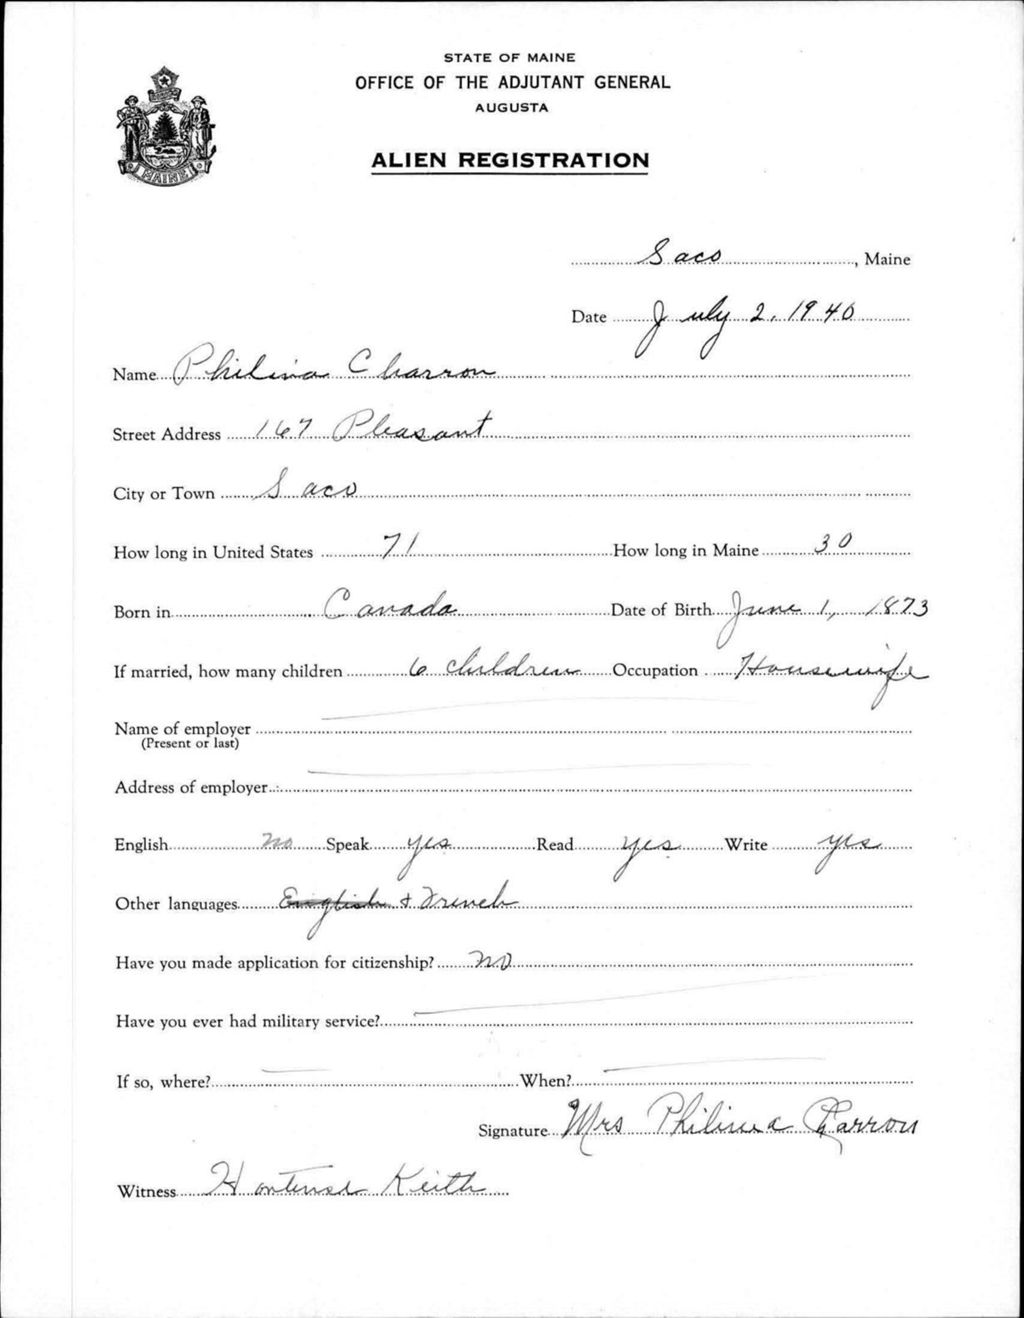 STATE OF MAINE
OFFICE OF THE ADJUTANT GENERAL
AUGUSTA
ALIEN REGISTRATION
MAINE
Saco, Maine
Date July 2, 1940
Name Philina Charron
Street Address 167 Pleasant
City or Town Saco
How long in United States 71 How long in Maine 30
Born in Canada Date of Birth June 1, 1873
If married, how many children 6 children Occupation Housewife
Name of employer
(Present or last)
Address of employer
English no Speak yes Read yes Write yes
Other languages English + French
Have you made application for citizenship? no
Have you ever had military service?
If so, where? When?
Signature Mrs Philina Charron
Witness Hortense Keith